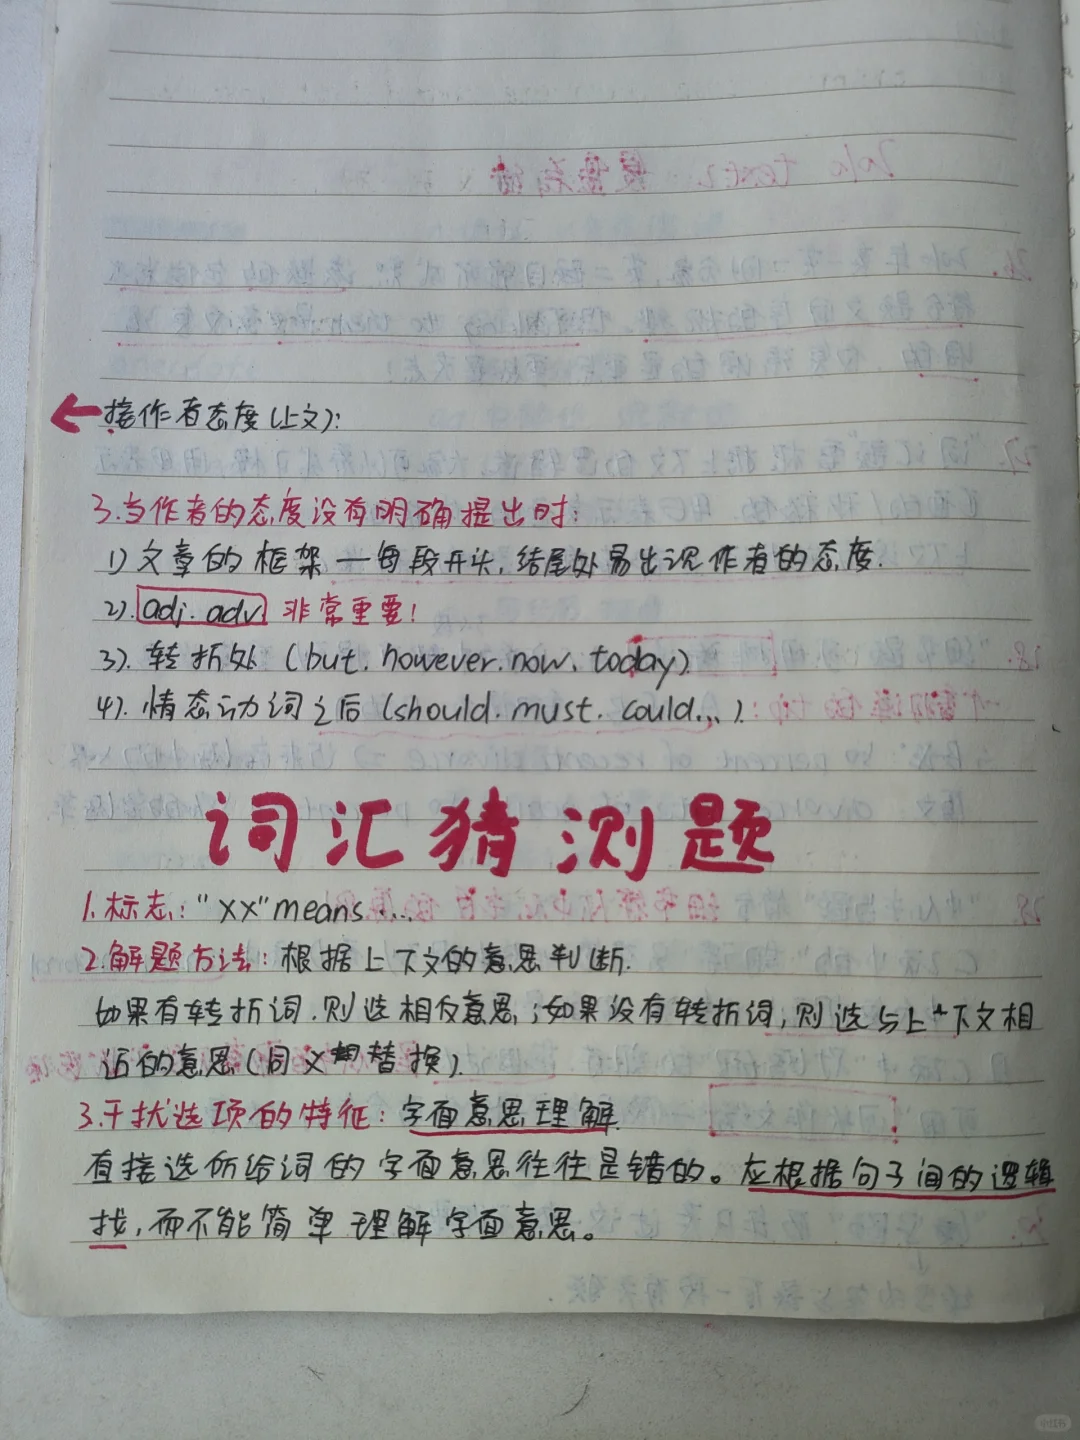 接作者态度(上文):
3.当作者的态度没有明确提出时:
1)文章的框架—每段开头,结尾处易出现作者的态度.
2).adj.adv.非常重要!
3).转折处(but.however.now.today)
4).情态动词之后(should.must.could...).
词汇猜测题
1.标志:"XX"means...
2.解题方法:根据上下文的意思判断.
如果有转折词.则选相反意思;如果没有转折词,则选与上下文相
近的意思(同义替换).
3.干扰选项的特征:字面意思理解.
直接选所给词的字面意思往往是错的。应根据句子间的逻辑
找,而不能简单理解字面意思。
小红书